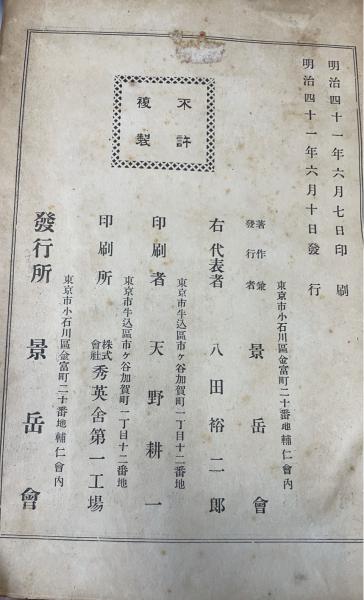 明治四十一年六月七日印刷
明治四十一年六月十日發行
不許
複製
東京市小石川區金富町二十番地輔仁會内
著作兼
發行者
景岳會
右代表者 八田裕二郎
東京市牛込區市ヶ谷加賀町一丁目十二番地
印刷者 天野耕一
東京市牛込區市ヶ谷加賀町一丁目十二番地
印刷所 株式會社 秀英舍第一工場
東京市小石川區金富町二十番地輔仁會内
發行所 景岳會